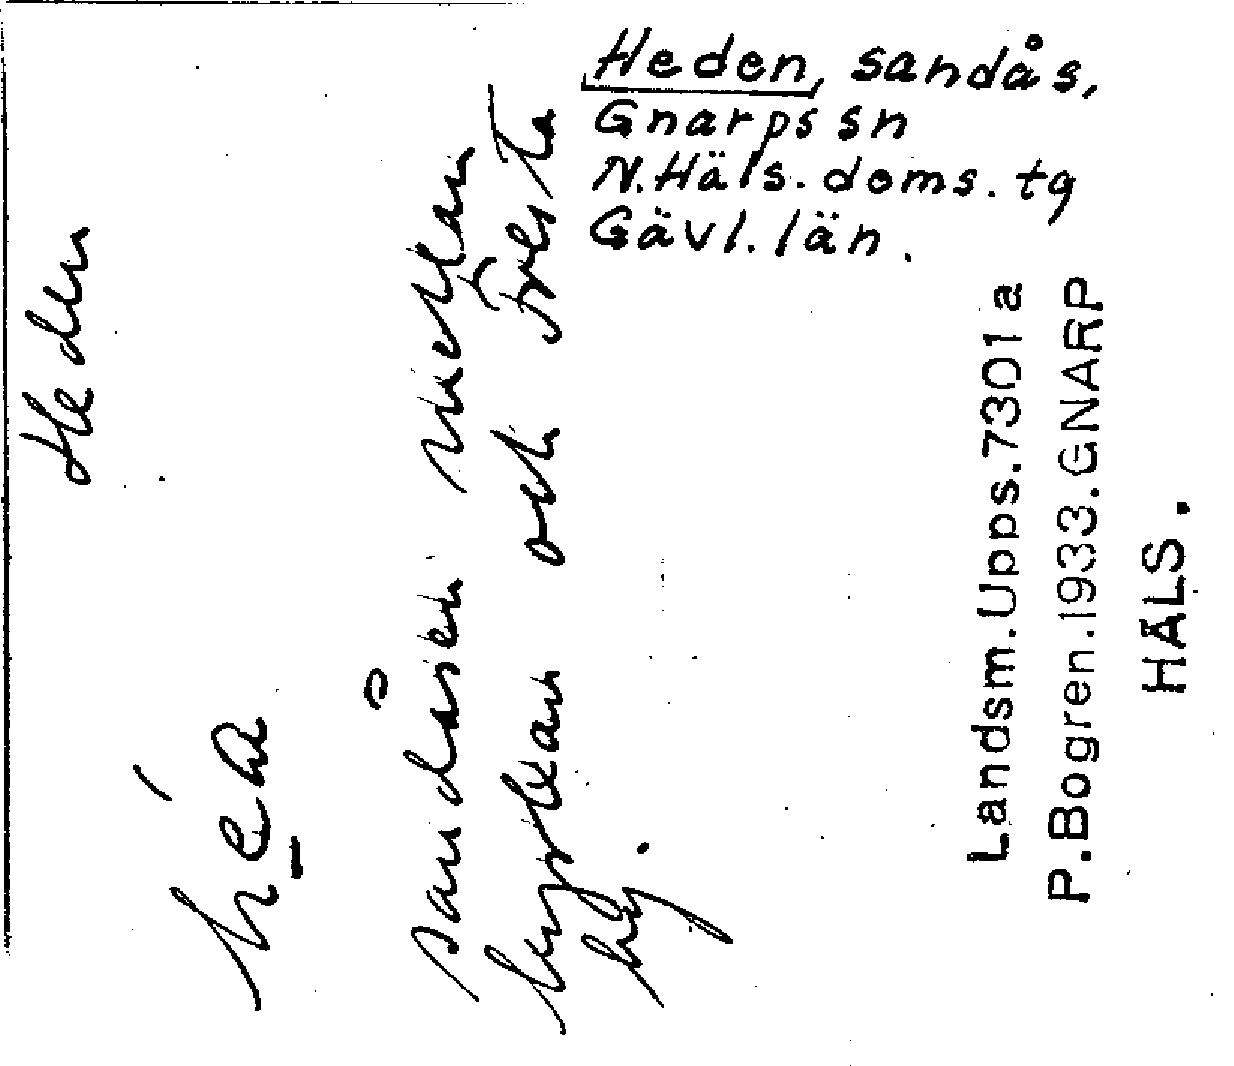 Heden, sandås,
Gnarps sn
N. Häls. doms. tg
Gävl. län.
Heden
héa
sandåsen mellan
kyrkan och Tresta
by.
Landsm. Upps. 7301 a
P. Bogren. 1933. GNARP
HÄLS.